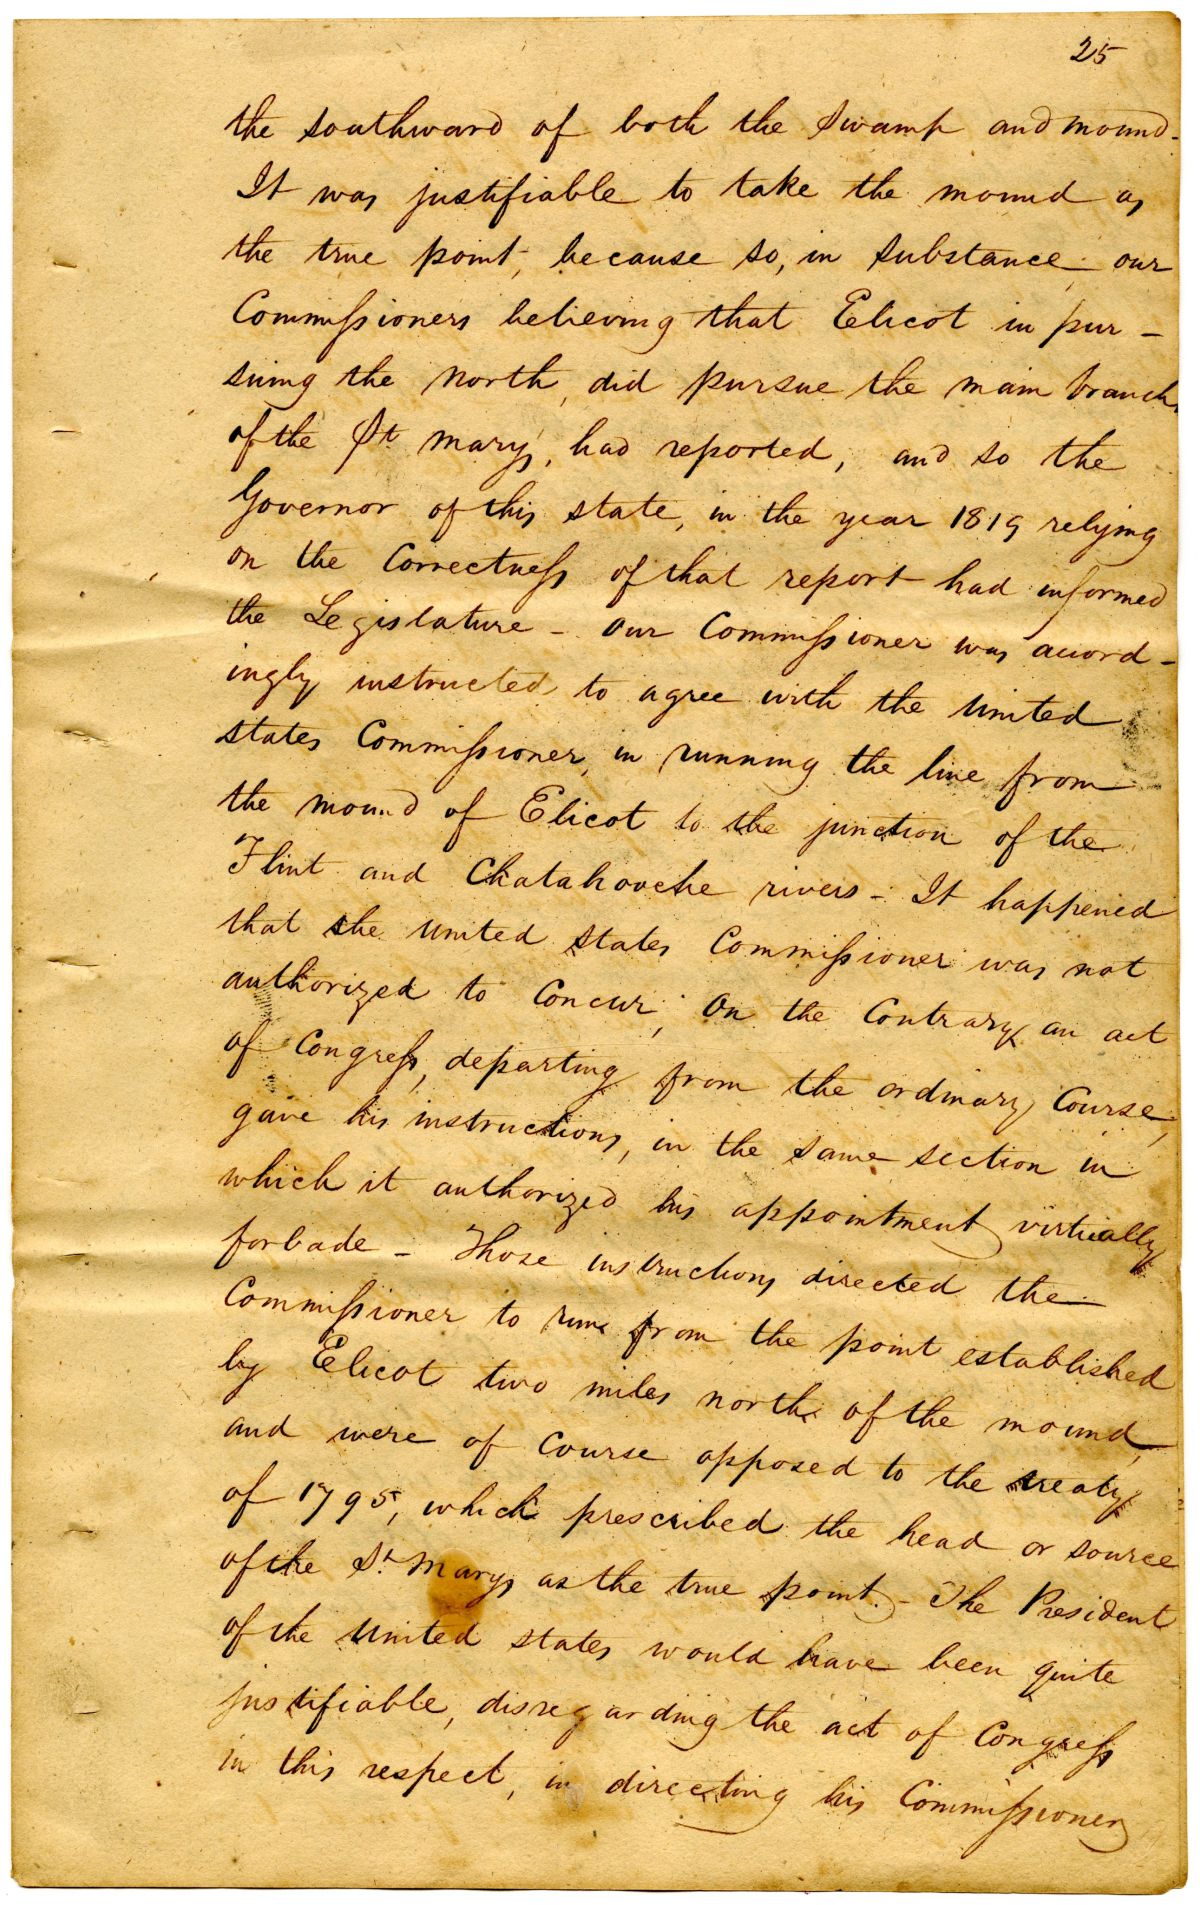 25
the southward of both the Swamp and mound -
It was justifiable to take the mound as
the true point, because so, in substance our
Commissioners believing that Elicot in pur -
suing the North, did pursue the main branch
of the St. Marys, had reported, and so the
Governor of this state, in the year 1819 relying
on the Correctness of that report had informed
the Legislature - Our Commissioner was acord -
ingly instructed to agree with the United
states Commissioner, in running the line from
the mound of Elicot to the junction of the
Flint and Chatahoochie rivers - It happened
that the United States Commissioner was not
authorized to Concur; On the Contrary an act
of Congress, departing from the ordinary Course,
gave his instructions, in the same section in
which it authorized his appointment virtually
forbade - Those instructions directed the
Commissioner to run from the point established
by Elicot two miles north of the mound,
and were of Course opposed to the treaty
of 1795, which prescribed the head or source
of the St. Marys as the true point. - The President
of the United States would have been quite
justifiable, disregarding the act of Congress
in this respect, in directing his Commissioner